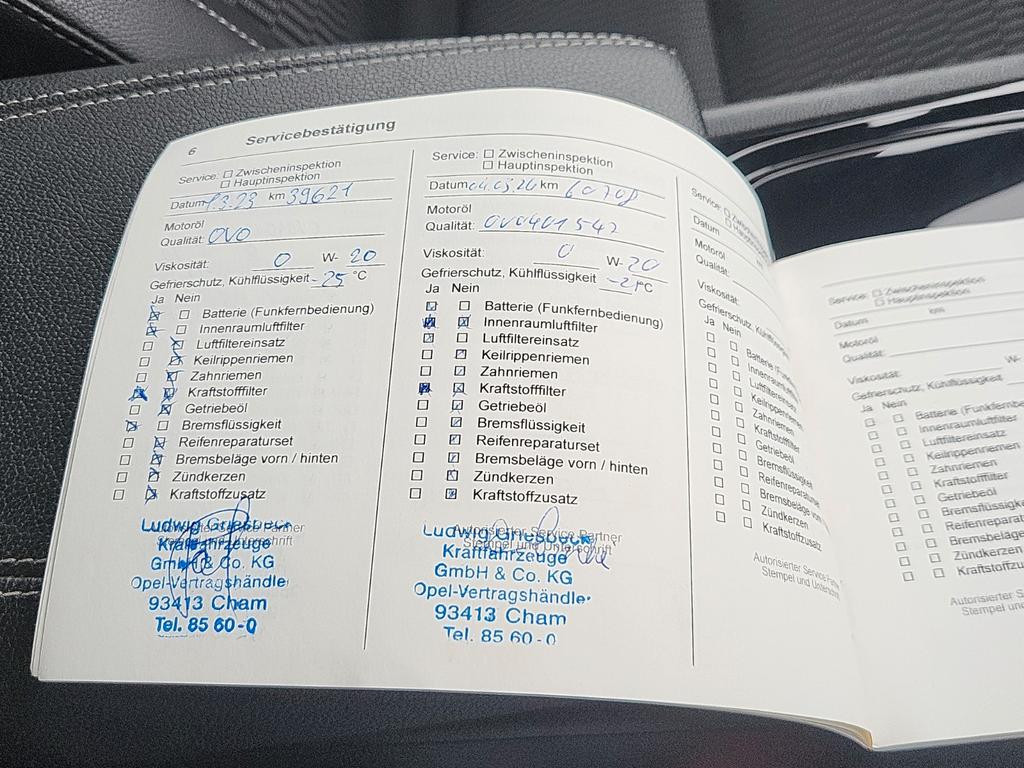 6 Servicebestätigung
Service: □ Zwischeninspektion
□ Hauptinspektion
Datum km 39621
Motoröl
Qualität: OVO
Viskosität: 0 W- 20
Gefrierschutz, Kühlflüssigkeit -25 °C
Ja Nein
Batterie (Funkfernbedienung)
Innenraumluftfilter
Luftfiltereinsatz
Keilrippenriemen
Zahnriemen
Kraftstofffilter
Getriebeöl
Bremsflüssigkeit
Reifenreparaturset
Bremsbeläge vorn / hinten
Zündkerzen
Kraftstoffzusatz
Autorisierter Service Partner
Stempel und Unterschrift
Ludwig Griesbeck
Kraftfahrzeuge
GmbH & Co. KG
Opel-Vertragshändler
93413 Cham
Tel. 85 60-0
Service: □ Zwischeninspektion
□ Hauptinspektion
Datum km
Motoröl
Qualität: OVO401547
Viskosität: 0 W- 20
Gefrierschutz, Kühlflüssigkeit °C
Ja Nein
Batterie (Funkfernbedienung)
Innenraumluftfilter
Luftfiltereinsatz
Keilrippenriemen
Zahnriemen
Kraftstofffilter
Getriebeöl
Bremsflüssigkeit
Reifenreparaturset
Bremsbeläge vorn / hinten
Zündkerzen
Kraftstoffzusatz
Autorisierter Service Partner
Stempel und Unterschrift
Ludwig Griesbeck
Kraftfahrzeuge
GmbH & Co. KG
Opel-Vertragshändler
93413 Cham
Tel. 85 60-0
Service: □ Zwischen
□ Haupt
Datum
Motoröl
Qualität:
Viskosität:
Gefrierschutz, Kühlflüssig
Ja Nein
Batterie
Innenraumluft
Luftfiltereinsatz
Keilrippenriemen
Zahnriemen
Kraftstofffilter
Getriebeöl
Bremsflüssigkeit
Reifenreparaturset
Bremsbeläge vorn
Zündkerzen
Kraftstoffzusatz
Autorisierter Service Pa
Stempel und Unterschri
Service: □ Zwischeninspektion
□ Hauptinspektion
Datum km
Motoröl
Qualität:
Viskosität: W-
Gefrierschutz, Kühlflüssigkeit
Ja Nein
Batterie (Funkfernbe
Innenraumluftfilter
Luftfiltereinsatz
Keilrippenriemen
Zahnriemen
Kraftstofffilter
Getriebeöl
Bremsflüssigkeit
Reifenreparatur
Bremsbeläge
Zündkerzen
Kraftstoffzu
Autorisierter Se
Stempel und